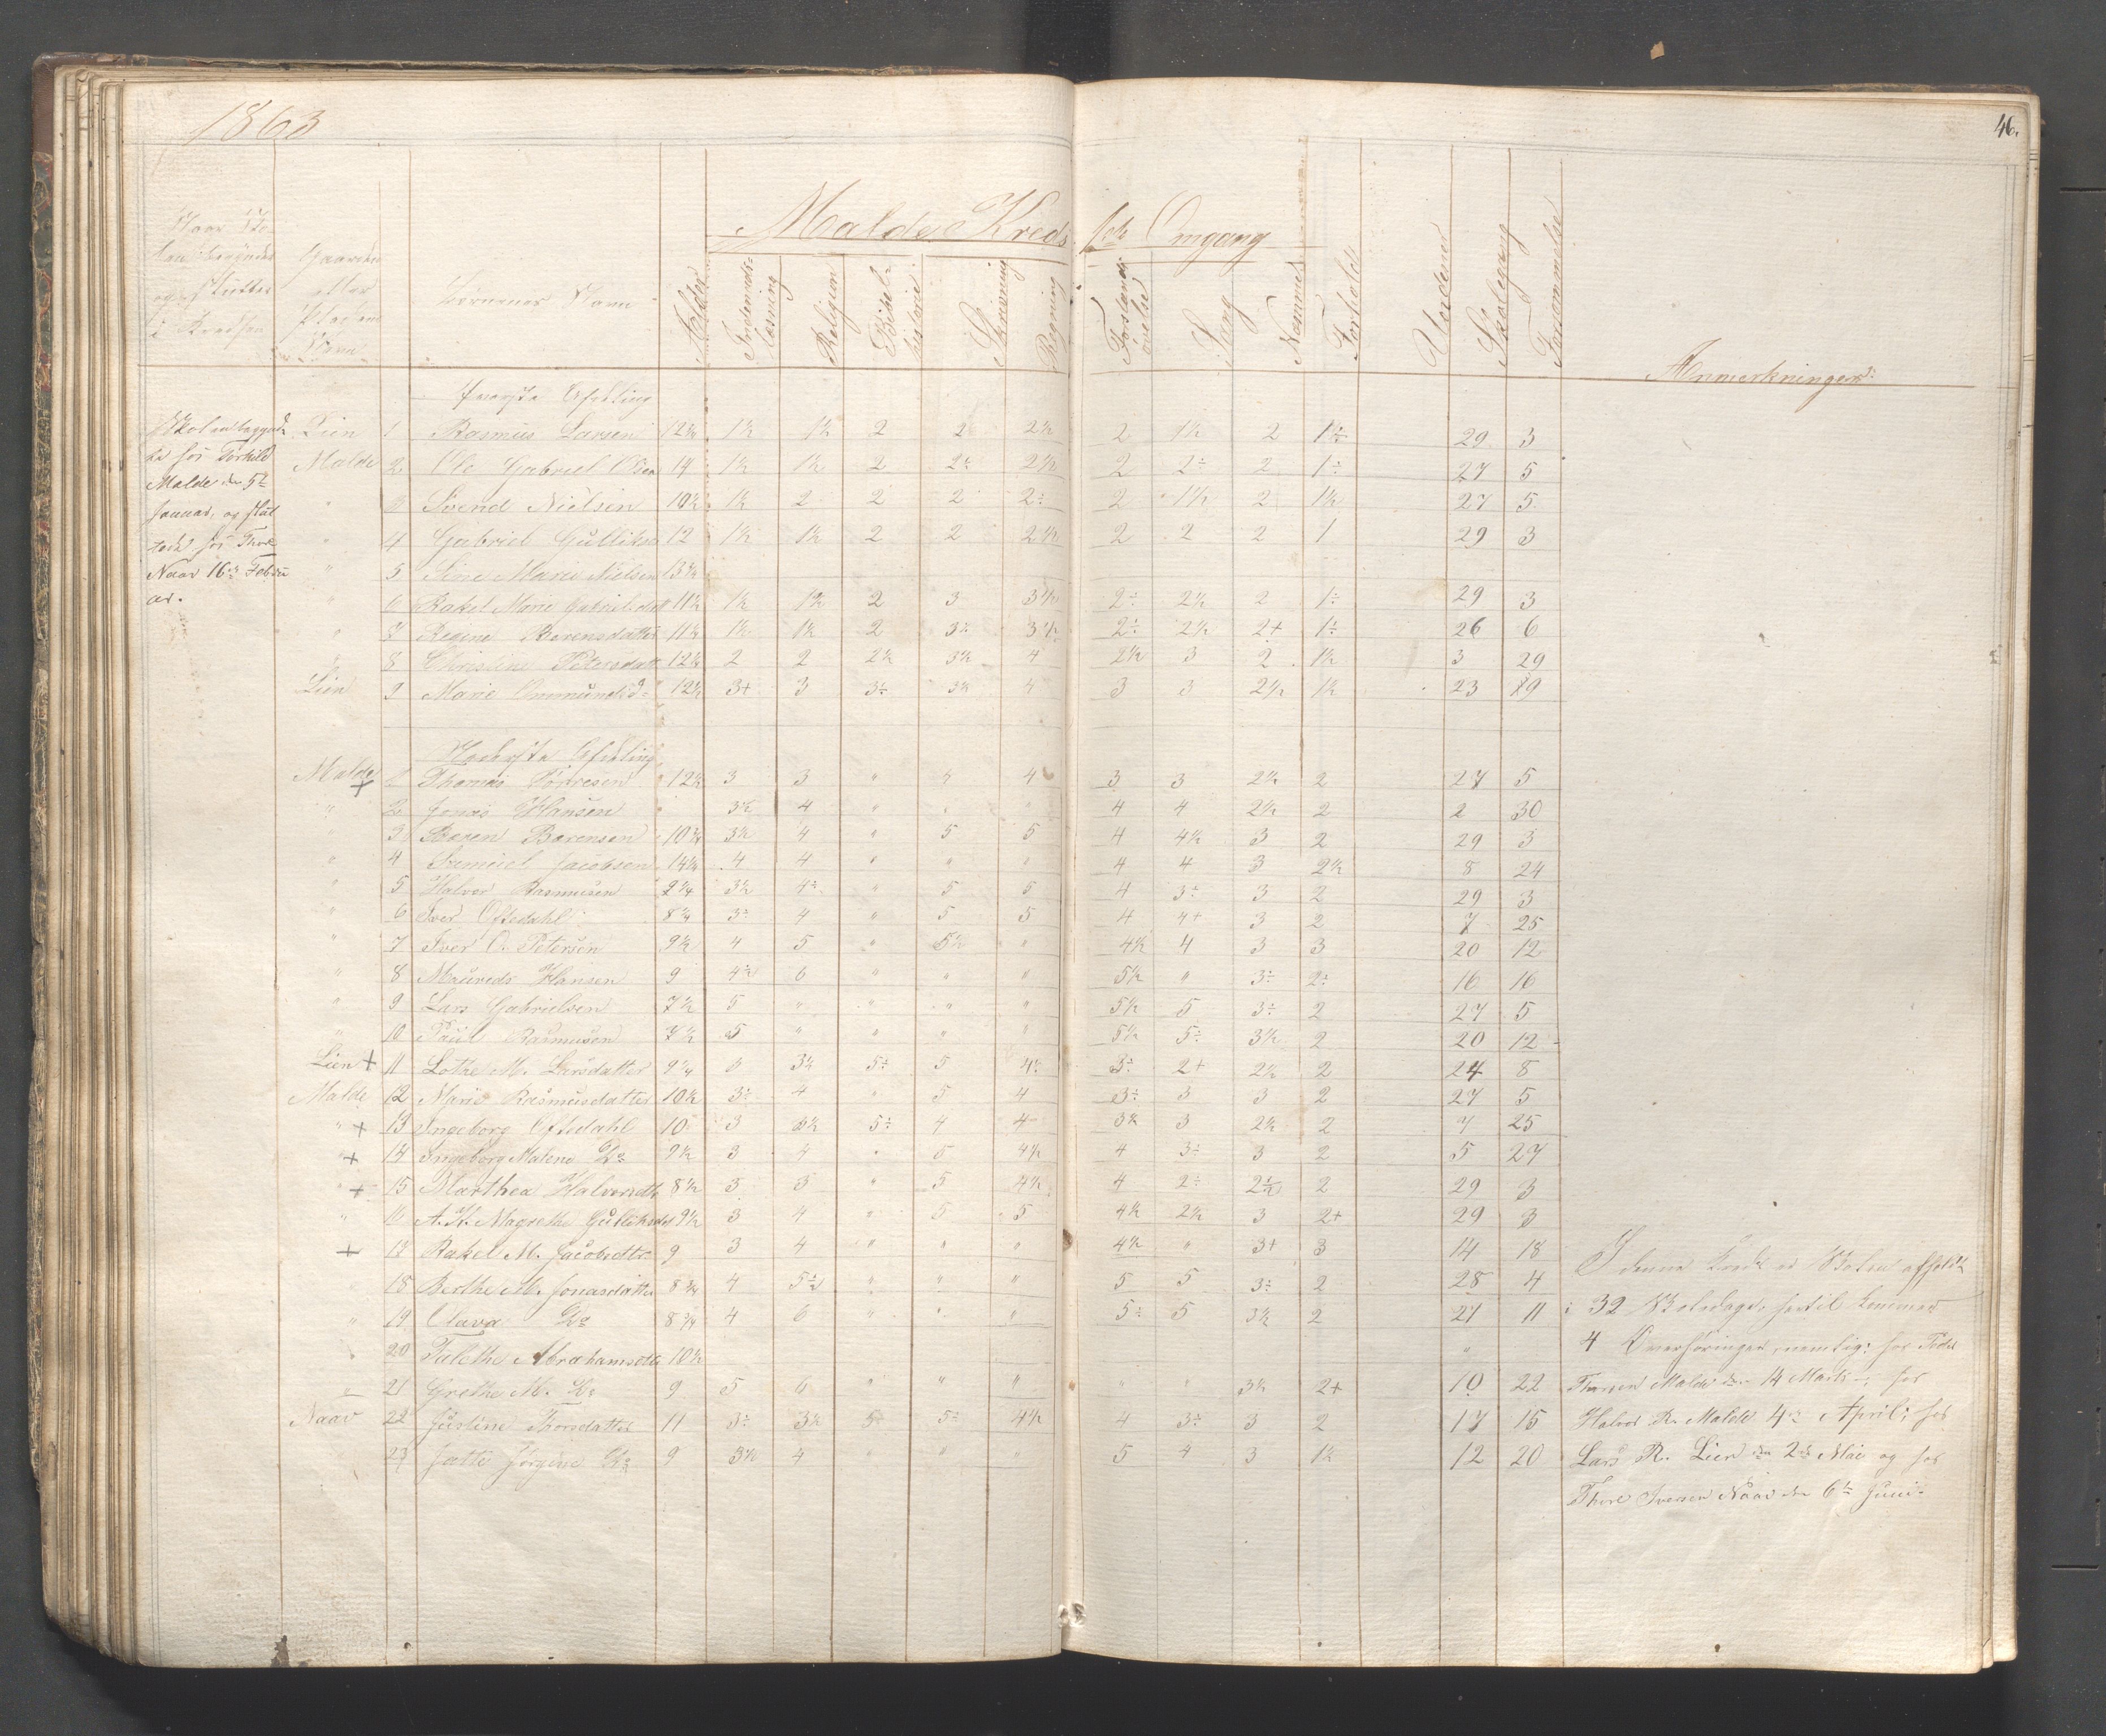 1863
46.
Malde Kreds 1ste Omgang
Naar Sko-
len begyndte
og sluttes
i Kredsen
Gaardens
eller
Pladsens
Navn
Børnenes Navn
Alder
Indenads-
læsning
Religion
Bibel-
historie
Skrivning
Regning
Forstands-
øvelse
Sang
Nemme
Forhold
Uorden
Skolegang
Forsømmelse
Anmærkninger:
Øverste Afdeling
Skolen begynd-
te hos Torkild
Malde den 5te
Januar, og slut-
tede hos Thore
Naav 16de Febru
ar.
Lien 1 Rasmus Larsen 12¾ 1½ 1½ 2 2 2½ 2 1½ 2 1÷ 29 3
Malde 2 Ole Gabriel Olsen 14 1½ 1½ 2 2½ 2½ 2 2÷ 2 1÷ 27 5
" 3 Svend Nielsen 10½ 1½ 2 2 2 2÷ 2 1½ 2 1½ 27 5
" 4 Gabriel Gulliksen 12 1½ 1½ 2 2 2½ 2 2 2 1 29 3
" 5 Sine Marie Nielsen 13¾
" 6 Rakel Marie Gabrielsdatt 11½ 1½ 1½ 2 3 3½ 2÷ 2½ 2 1÷ 29 3
" 7 Regine Berensdatter 11½ 1½ 1½ 2 3½ 3½ 2÷ 2½ 2+ 1÷ 26 6
" 8 Christine Petersdatt 12½ 2 2 2½ 3½ 4 2½ 3 2 1½ 3 29
Lien 9 Marie Ommundsd. 12½ 3+ 3 3÷ 3½ 4 3 3 2½ 1½ 23 9
Nederste Afdeling
Malde + 1 Thomas Torresen 12½ 3 3 " 4 4 3 3 2½ 2 27 5
" 2 Jonas Hansen 3½ 4 " " 4 4 2½ 2 2 30
" 3 Beren Berensen 10¾ 3½ 4 " 5 5 4 4½ 3 2 29 3
" 4 Samuel Jacobsen 14¼ 4 4 " " " 4 4 3 2½ 8 24
" 5 Halvor Rasmusen 9¼ 3½ 4÷ " 5 5 4 3÷ 3 2 29 3
" 6 Iver Oftedahl 8¾ 3÷ 4 " 5 5 4 4+ 3 2 7 25
" 7 Iver O. Petersen 9½ 4 5 " 5½ " 4½ 4 3 3 20 12
" 8 Maureds Hansen 9 4½ 6 " " " 5½ " 3÷ 2÷ 16 16
" 9 Lars Gabrielsen 7½ 5 " " " " 5½ 5 3÷ 2 27 5
" 10 Paul Rasmusen 7½ 5 " " " " 5½ 5÷ 3½ 2 20 12
Lien + 11 Lothe M. Larsdatter 9¼ 3 3½ 5÷ 5 4÷ 3÷ 2+ 2½ 2 24 8
Malde 12 Marie Rasmusdatter 10½ 3÷ 4 5 4 3÷ 3 3 2 27 5
" + 13 Ingeborg Oftedahl 10 3 3½ 5÷ 4 4 3½ 3 2½ 2 7 25
" + 14 Ingeborg Malene Do 9½ 3 4 " 5 4½ 4 3÷ 3 2 5 27
" + 15 Marthea Halvorsdtr 8½ 3 3 " 5 4½ 4 2÷ 2½ 2 29 3
" 16 A. K. Magrethe Gulliksdtr 9½ 3 4 " 5 5 4½ 2½ 3 2+ 29 3
+ 17 Rakel M. Jacobsdtr 9 3 4 " " " 4½ " 3+ 3 14 18
18 Berthe M. Jonasdatter 8¾ 4 5½ " " " 5 5 3÷ 2 28 4
" 19 Olava Do 8¾ 4 6 " " " 5÷ 5 3½ 2 21 11
" 20 Talethe Abrahamsdtr 10½ "
" 21 Grethe M. Do 9 5 6 " " " " " 3½ 2+ 10 22
Naav 22 Justine Thorsdatter 11 3÷ 3½ 5 5÷ 4½ 4 3÷ 3 2 17 15
" 23 Jætte Jørgine Do 9 3½ 4 " " " 5 4 3 1½ 12 20
I denne Kreds er Skolen afholdt
i 32 Skoledage, hertil kommer
4 Overhøringer, nemlig: hos
Malde den 14 Marts, hos
Halvor R. Malde 4de April, hos
Lars R. Lien den 2den Mai og hos
Thore Naav den 6te Juni.